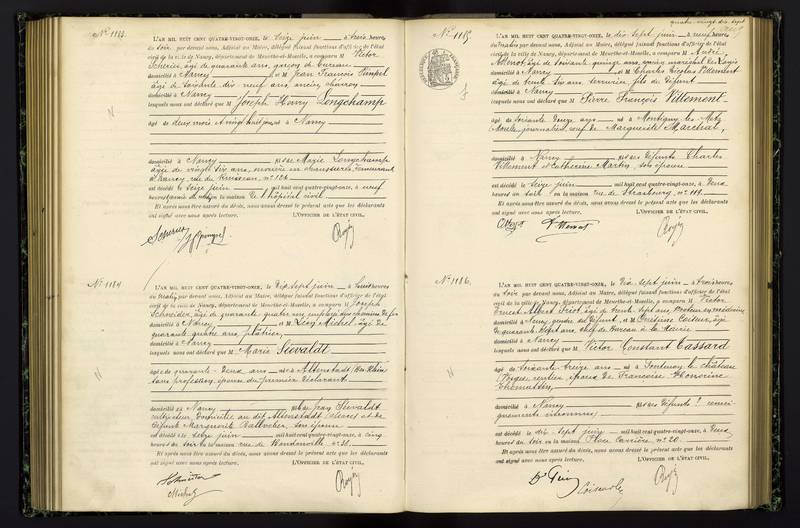 N° 1183.
L'AN MIL HUIT CENT QUATRE-VINGT-ONZE, le Seize juin à trois heures
du soir par devant nous, Adjoint au Maire, délégué faisant fonctions d'officier de l'état
civil de la ville de Nancy, département de Meurthe-et-Moselle, a comparu M Victor
Scherier, âgé de quarante ans, garçon de bureau
domicilié à Nancy et M Jean François
âgé de soixante dix neuf ans, ancien
domicilié à Nancy
lesquels nous ont déclaré que M Joseph Henry Longchamp
âgé de deux mois et vingt huit jours né à Nancy
domicilié à Nancy fils de Marie Longchamp
âgée de vingt six ans, demeurant
à Nancy, rue du Ruisseau n° 126
est décédé le Seize juin mil huit cent quatre-vingt-onze, à neuf
heures du matin en la maison de l'hôpital civil.
Et après nous être assuré du décès, nous avons dressé le présent acte que les déclarants
ont signé avec nous après lecture. L'OFFICIER DE L'ÉTAT CIVIL,
N° 1184
L'AN MIL HUIT CENT QUATRE-VINGT-ONZE, le Dix sept juin à huit heures
du matin, par devant nous, Adjoint au Maire, délégué faisant fonctions d'officier de l'état
civil de la ville de Nancy, département de Meurthe-et-Moselle, a comparu M Joseph
Schneider, âgé de quarante quatre ans employé au chemin de fer
domicilié à Nancy et M Levy Michel, âgé de
quarante quatre ans, plâtrier,
domicilié à Nancy
lesquels nous ont déclaré que M Marie Siewaldt
âgée de quarante deux ans née à Altenstadt (Bas Rhin)
sans profession, épouse du premier déclarant
domiciliée à Nancy fille de Jean Siewaldt
cultivateur, domicilié au dit Altenstadt (Alsace) et de
défunte Marguerite son épouse
est décédée le seize juin mil huit cent quatre-vingt-onze, à cinq
heures du soir en la maison rue de n° 38.
Et après nous être assuré du décès, nous avons dressé le présent acte que les déclarants
ont signé avec nous après lecture. L'OFFICIER DE L'ÉTAT CIVIL,
Michel
quatre vingt dix sept
N° 1185.
L'AN MIL HUIT CENT QUATRE-VINGT-ONZE, le dix sept juin à neuf heures
du matin par devant nous, Adjoint au Maire, délégué faisant fonctions d'officier de l'état
civil de la ville de Nancy, département de Meurthe-et-Moselle, a comparu M André
âgé de soixante quinze ans, ancien maréchal des logis
domicilié à Nancy et M Charles Nicolas Villemont
âgé de trente six ans, serrurier, fils du défunt
domicilié à Nancy
lesquels nous ont déclaré que M Pierre François Villemont
âgé de soixante douze ans né à Montigny les Metz
Moselle, journalier, veuf de Marguerite Marchal,
domicilié à Nancy fils des défunts Charles
Villemont et Catherine Martin, son épouse
est décédé le Seize juin mil huit cent quatre-vingt-onze, à deux
heures du soir en la maison rue de Strasbourg, n° 119.
Et après nous être assuré du décès, nous avons dressé le présent acte que les déclarants
ont signé avec nous après lecture. L'OFFICIER DE L'ÉTAT CIVIL,
N° 1186.
L'AN MIL HUIT CENT QUATRE-VINGT-ONZE, le Dix sept juin à trois heures
du soir par devant nous, Adjoint au Maire, délégué faisant fonctions d'officier de l'état
civil de la ville de Nancy, département de Meurthe-et-Moselle, a comparu M Victor
Ernest Albert âgé de trente sept ans, Docteur en médecine
domicilié à Nancy, gendre du défunt, et M
quarante sept ans, chef de bureau à la Mairie
domicilié à Nancy
lesquels nous ont déclaré que M Victor Constant Cassard
âgé de soixante treize ans né à Fontenoy le château
(Vosges, rentier, époux de Françoise Honorine
Thomassin,
domicilié à Nancy fils des défunts
est décédé le dix sept juin mil huit cent quatre-vingt-onze, à deux
heures du soir en la maison Place Carrière n° 20.
Et après nous être assuré du décès, nous avons dressé le présent acte que les déclarants
ont signé avec nous après lecture. L'OFFICIER DE L'ÉTAT CIVIL,